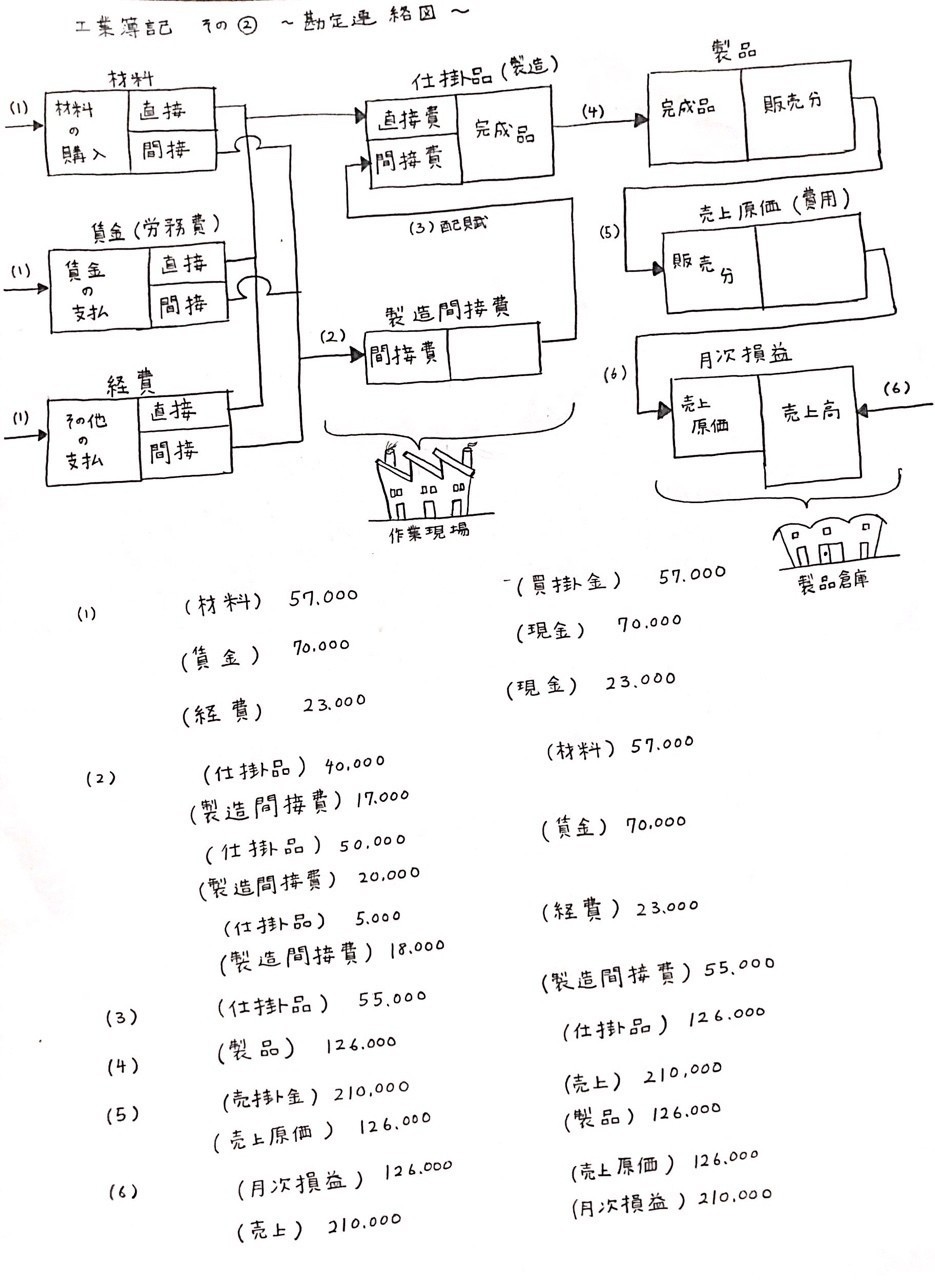 工業簿記 その② ～勘定連絡図～
材料
(1)
材料
の
購入
直接
間接
賃金(労務費)
(1)
賃金
の
支払
直接
間接
経費
(1)
その他
の
支払
直接
間接
仕掛品(製造)
直接費
間接費
完成品
(3)配賦
製造間接費
(2)
間接費
作業現場
(4)
製品
完成品
販売分
(5)
売上原価(費用)
販売
分
(6)
月次損益
売上
原価
売上高
(6)
製品倉庫
(1) (材料) 57.000 (買掛金) 57.000
(賃金) 70.000 (現金) 70.000
(経費) 23.000 (現金) 23.000
(2) (仕掛品) 40,000 (材料) 57.000
(製造間接費) 17.000
(仕掛品) 50,000 (賃金) 70,000
(製造間接費) 20,000
(仕掛品) 5.000 (経費) 23,000
(製造間接費) 18.000
(3) (仕掛品) 55,000 (製造間接費) 55.000
(4) (製品) 126.000 (仕掛品) 126.000
(5) (売掛金) 210,000 (売上) 210,000
(売上原価) 126.000 (製品) 126.000
(6) (月次損益) 126.000 (売上原価) 126.000
(売上) 210.000 (月次損益) 210.000